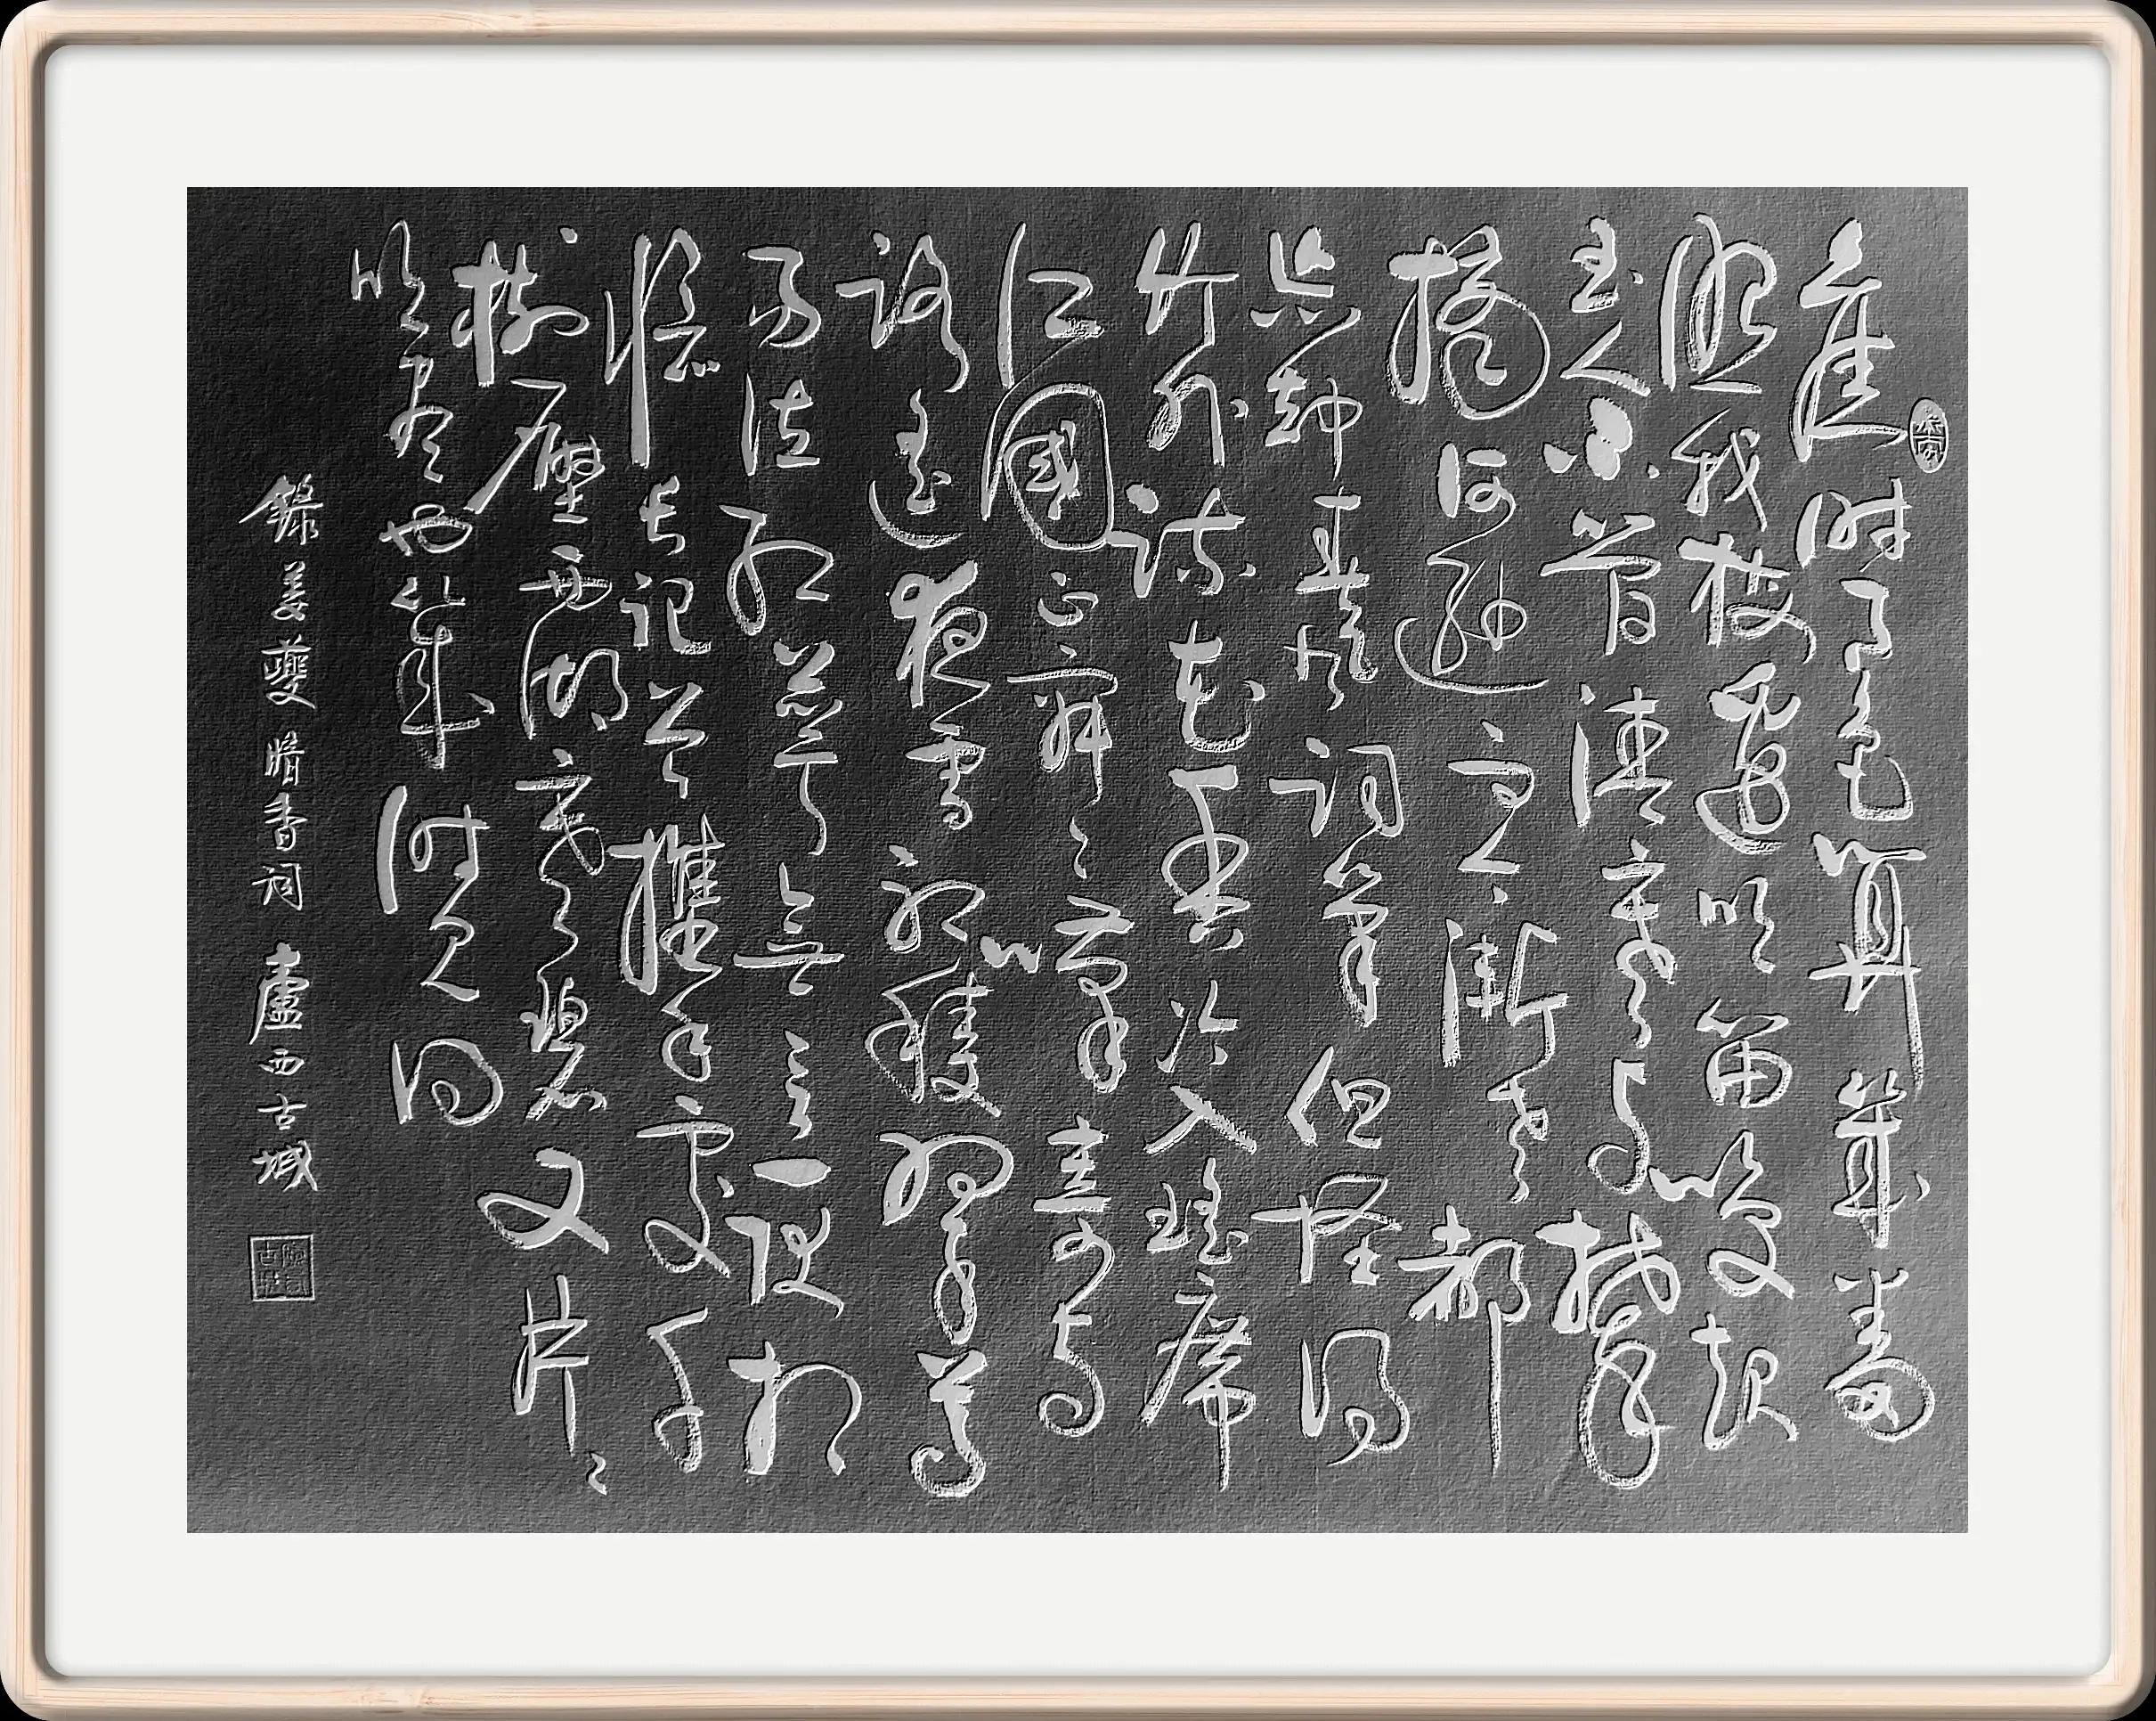 舊時月色算幾番
照我梅邊吹笛喚起
玉人不管清寒與攀
摘何遜而今漸老都
忘却春風詞筆但怪得
竹外疏花香冷入瑤席
江國正寂〻嘆寄与
路遙夜雪初積翠尊
易泣紅萼無言耿相
憶長記曾攜手處千
樹壓西湖寒碧又片〻
吹尽也幾時見得
錄姜夔暗香詞 盧西古城